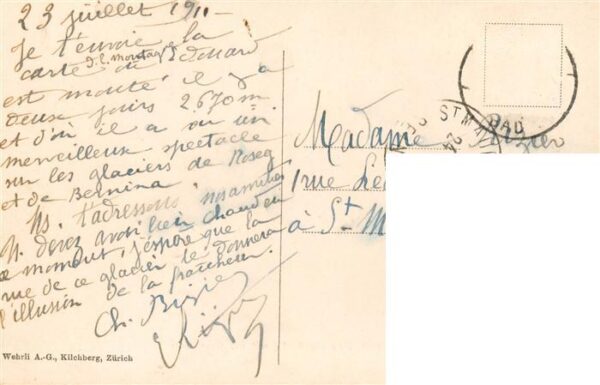 23 juillet 191
Je t'envoie la
carte de d. l. montag Edouard
est monté il y a
deux jours 2670 m
et d'où il a vu un
merveilleux spectacle
sur les glaciers de Roseg
et de Bernina
Ns. t'adressons nos amitiés
V. devez avoir bien chaud en
ce moment, j'espère que la
vue de ce glacier te donnera
l'illusion de la fraîcheur.
Ch.
Wehrli A.-G., Kilchberg, Zürich
Madame
1 rue
à St M
ST. M
BAD
24